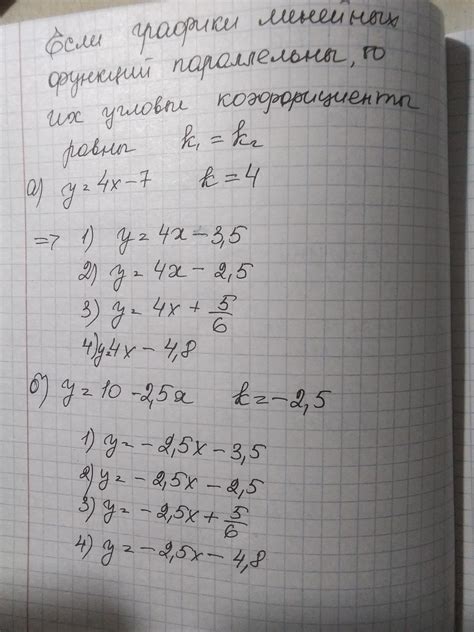 Если графики линейных
функций параллельны, то
их угловы коэффициенты
равны k₁ = k₂
а) y = 4x - 7 k = 4
=> 1) y = 4x - 3,5
2) y = 4x - 2,5
3) y = 4x + 5/6
4) y = 4x - 4,8
б) y = 10 - 2,5x k = -2,5
1) y = -2,5x - 3,5
2) y = -2,5x - 2,5
3) y = -2,5x + 5/6
4) y = -2,5x - 4,8